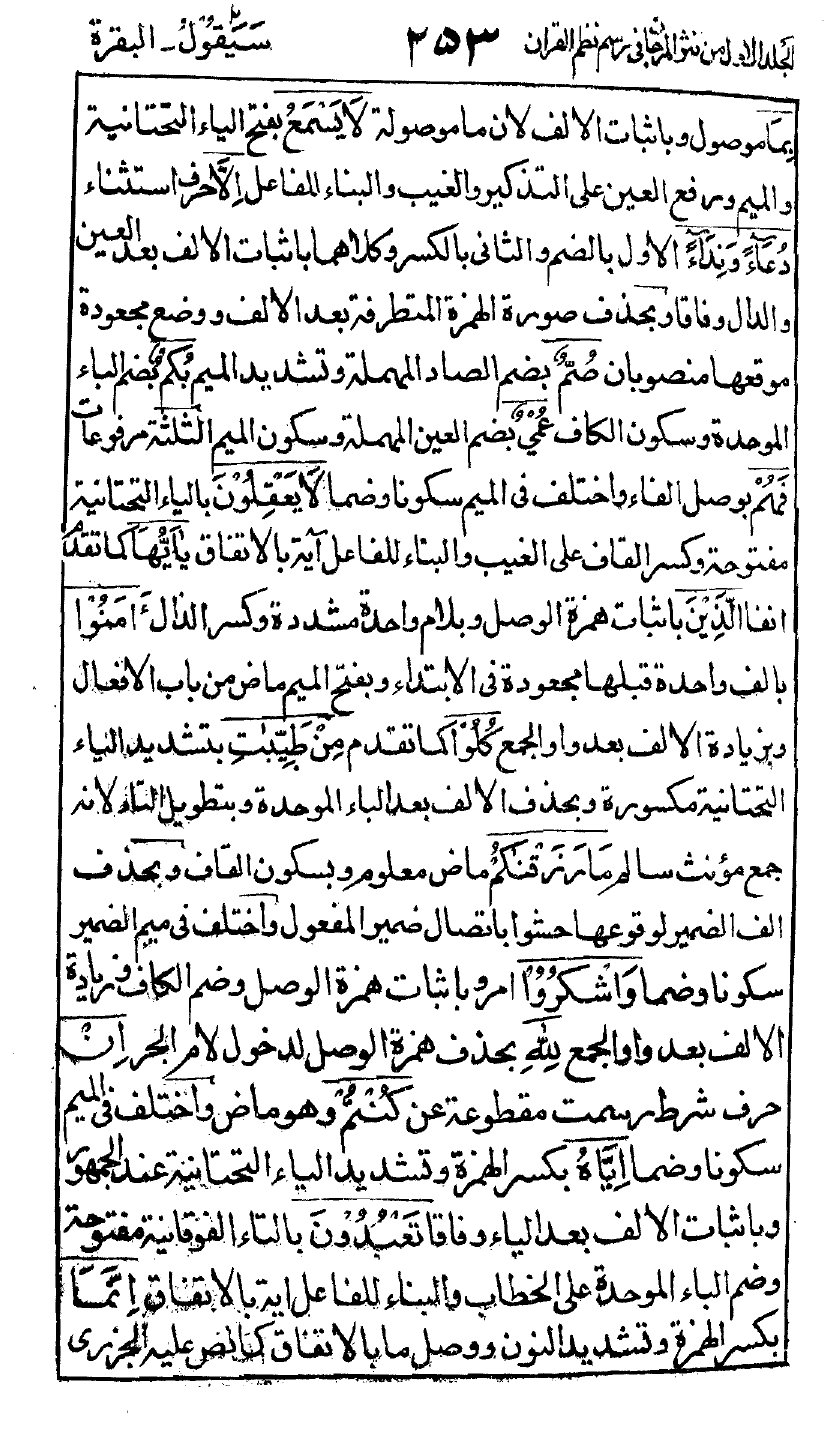 الجلد الاول من نثر المرجان فى رسم نظم القران ٢٥٣ سَيَقُولُ ٢ - البقرة
بِمَا موصول وباثبات الالف لان ما موصولة لَا يَسْمَعُ بفتح الياء التحتانية
والميم ورفع العين على التذكير والغيب والبناء للفاعل اِلَّا حرف استثناء
دُعَآءً وَنِدَآءً الاول بالضم والثانى بالكسر وكلاهما باثبات الالف بعد العين
والدال وفاقا وبحذف صورة الهمزة المتطرفة بعد الالف ووضع مجعودة
موقعها منصوبان صُمٌّ بضم الصاد المهملة وتشديد الميم بُكْمٌ بضم الباء
الموحدة وسكون الكاف عُمْيٌ بضم العين المهملة وسكون الميم الثلثة مرفوعات
فَهُمْ بوصل الفاء واختلف فى الميم سكونا وضما لَا يَعْقِلُوْنَ بالياء التحتانية
مفتوحة وكسر القاف على الغيب والبناء للفاعل آية بالاتفاق يٰاَيُّهَا كما تقدم
انفا الَّذِيْنَ باثبات همزة الوصل وبلام واحدة مشددة وكسر الذال ءَامَنُوْا
بالف واحدة قبلها مجعودة فى الابتداء وبفتح الميم ماض من باب الافعال
وبزيادة الالف بعد واو الجمع كُلُوْا كما تقدم مِنْ طَيِّبٰتِ بتشديد الياء
التحتانية مكسورة وبحذف الالف بعد الباء الموحدة وبتطويل التاء لانه
جمع مؤنث سالم مَا رَزَقْنٰكُمْ ماض معلوم وبسكون القاف وبحذف
الف الضمير لوقوعها حشوا باتصال ضمير المفعول واختلف فى ميم الضمير
سكونا وضما وَاشْكُرُوْا امر وباثبات همزة الوصل وضم الكاف وزيادة
الالف بعد واو الجمع لِلّٰهِ بحذف همزة الوصل لدخول لام الجر اِنْ
حرف شرط رسمت مقطوعة عن كُنْتُمْ وهو ماض واختلف فى الميم
سكونا وضما اِيَّاهُ بكسر الهمزة وتشديد الياء التحتانية عند الجمهور
وباثبات الالف بعد الياء وفاقا تَعْبُدُوْنَ بالتاء الفوقانية مفتوحة
وضم الباء الموحدة على الخطاب والبناء للفاعل اية بالاتفاق اِنَّمَا
بكسر الهمزة وتشديد النون ووصل ما بالاتفاق كما نص عليه الجزرى